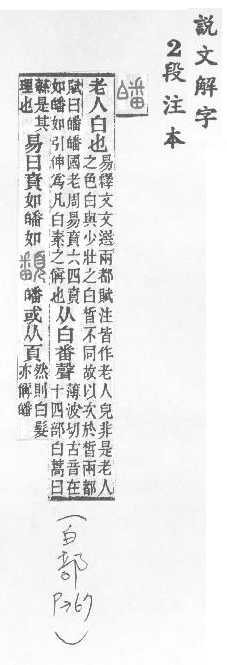 說文解字
2段注本
皤
老人白也
易釋文文選兩都賦注皆作老人皃非是老人
之色白與少壯之白皙不同故以次於皙兩都
賦曰皤皤國老周易賁六四賁
如皤如引伸爲凡白素之偁也
从白番聲
薄波切古音在
十四部白蒿曰
蘩是其
理也
易曰賁如皤如
皤或从頁
然則白髮
亦偁皤
(白部
)